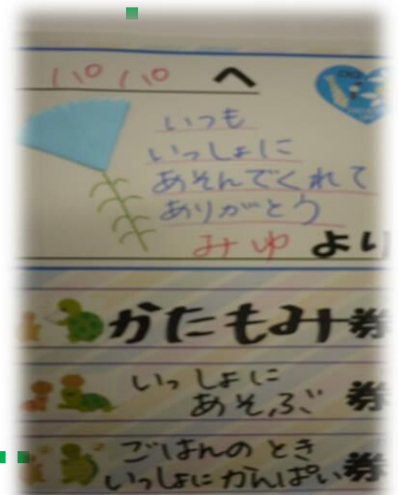 パパ へ
いつも
いっしょに
あそんでくれて
ありがとう
みゆ より
かたもみ券
いっしょに
あそぶ 券
ごはんの とき
いっしょにかんぱい券